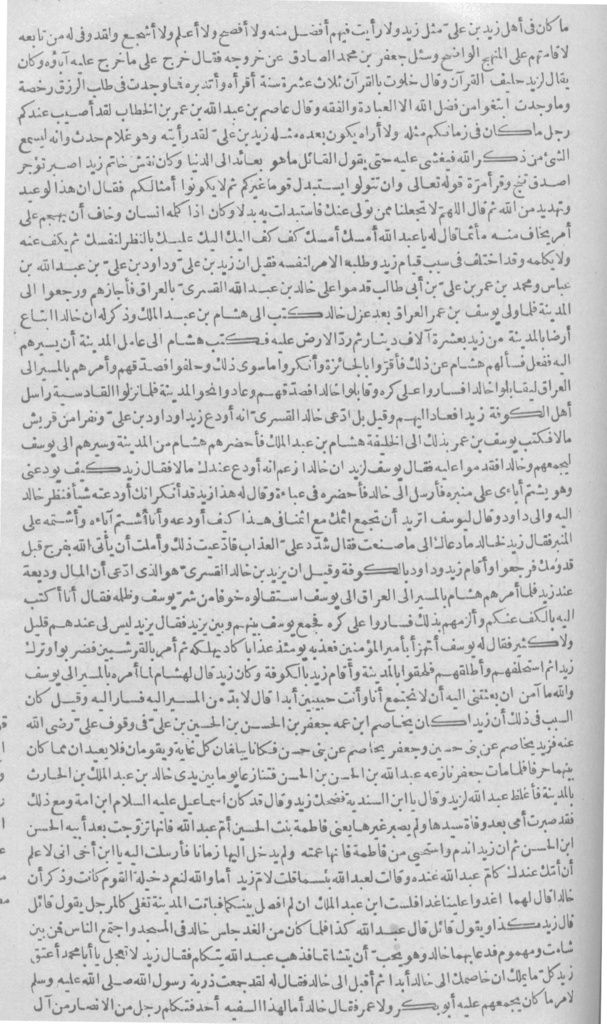 ما كان فى أهل زيد بن على مثل زيد ولا رأيت فيهم أفضل منه ولا أفصح ولا أعلم ولا أشجع ولقد وفى له من تابعه
لاقامتهم على المنهج الواضح وسئل جعفر بن محمد الصادق عن خروجه فقال خرج على ما خرج عليه آباؤه وكان
يقال لزيد حليف القرآن وقال خلوت بالقرآن ثلاث عشرة سنة أقرأه وأتدبره فما وجدت فى طلب الرزق رخصة
وما وجدت ابتغوا من فضل الله الا العبادة والفقه وقال عاصم بن عبد الله بن عمر بن الخطاب لقد أصيب عندكم
رجل ما كان فى زمانكم مثله ولا أراه يكون بعده مثله زيد بن على لقد رأيته وهو غلام حدث وانه ليسمع
الشئ من ذكر الله فيغشى عليه حتى يقول القائل ما هو بعائد الى الدنيا وكان نقش خاتم زيد اصبر تؤجر
اصدق تنج وقرأ مرة قوله تعالى وان تتولوا يستبدل قوما غيركم ثم لا يكونوا أمثالكم فقال ان هذا لوعيد
وتهديد من الله ثم قال اللهم لا تجعلنا ممن تولى عنك فاستبدلت به بدلا وكان اذا كلمه انسان وخاف أن يهجم على
أمر يخاف منه مأثما قال له يا عبد الله أمسك أمسك كف كف اليك اليك عليك بالنظر لنفسك ثم يكف عنه
ولا يكلمه وقد اختلف فى سبب قيام زيد وطلبه الامر لنفسه فقيل ان زيد بن على وداود بن على بن عبد الله بن
عباس ومحمد بن عمر بن على بن أبى طالب قدموا على خالد بن عبد الله القسرى بالعراق فأجازهم ورجعوا الى
المدينة فلما ولى يوسف بن عمر العراق بعد عزل خالد كتب الى هشام بن عبد الملك وذكر له ان خالدا ابتاع
أرضا بالمدينة من زيد بعشرة آلاف دينار ثم رد الارض عليه فكتب هشام الى عامل المدينة أن يسيرهم
اليه ففعل فسألهم هشام عن ذلك فأقروا بالجائزة وأنكروا ما سوى ذلك وحلفوا فصدقهم وأمرهم بالمسير الى
العراق ليقابلوا خالدا فساروا على كره وقابلوا خالدا فصدقهم وعادوا نحو المدينة فلما نزلوا القادسية راسل
أهل الكوفة زيدا فعاد اليهم وقيل بل ادعى خالد القسرى انه أودع زيدا وداود بن على ونفرا من قريش
مالا فكتب يوسف بن عمر بذلك الى الخليفة هشام بن عبد الملك فأحضرهم هشام من المدينة وسيرهم الى يوسف
ليجمعهم وخالدا فقدموا عليه فقال يوسف لزيد ان خالدا زعم انه أودع عندك مالا فقال زيد كيف يودعنى
وهو يشتم آبائى على منبره فأرسل الى خالد فأحضره فى عباءة وقال له هذا زيد قد أنكر انك أودعته شيأ فنظر خالد
اليه والى داود وقال ليوسف أتريد أن تجمع اثمك مع اثمنا فى هذا كيف أودعه وأنا أشتم آباءه وأشتمه على
المنبر فقال زيد لخالد ما دعاك الى ما صنعت فقال شدد على العذاب فادعيت ذلك وأملت أن يأتى الله بفرج قبل
قدومك فرجعوا وأقام زيد وداود بالكوفة وقيل ان يزيد بن خالد القسرى هو الذى ادعى أن المال وديعة
عند زيد فلما أمرهم هشام بالمسير الى العراق الى يوسف استقالوه خوفا من شر يوسف وظلمه فقال أنا أكتب
اليه بالكف عنكم وألزمهم بذلك فساروا على كره فجمع يوسف بينهم وبين يزيد فقال يزيد ليس لى عندهم قليل
ولا كثير فقال له يوسف أتهزأ بأمير المؤمنين فعذبه يومئذ عذابا كاد يهلكه ثم أمر بالقرشيين فضربوا وترك
زيدا ثم استحلفهم وأطلقهم فلحقوا بالمدينة وأقام زيد بالكوفة وكان زيد قال لهشام لما أمره بالمسير الى يوسف
والله ما آمن ان بعثتنى اليه أن لا نجتمع أنا وأنت حيين أبدا قال لا بد من المسير اليه فسار اليه وقيل كان
السبب فى ذلك أن زيدا كان يخاصم ابن عمه جعفر بن الحسن بن الحسين بن على فى وقوف على رضى الله
عنه فزيد يخاصم عن بنى حسين وجعفر يخاصم عن بنى حسن فكانا يبلغان كل غاية ويقومان فلا يعيدان مما كان
بينهما حرفا فلما مات جعفر نازعه عبد الله بن الحسن بن الحسن فتنازعا يوما بين يدى خالد بن عبد الملك بن الحارث
بالمدينة فأغلظ عبد الله لزيد وقال يا ابن السندية فضحك زيد وقال قد كان اسماعيل عليه السلام ابن امة ومع ذلك
فقد صبرت أمى بعد وفاة سيدها ولم يصبر غيرها يعنى فاطمة بنت الحسين أم عبد الله فانها تزوجت بعد أبيه الحسن
ابن الحسن ثم ان زيدا ندم واستحيى من فاطمة فانها عمته ولم يدخل اليها زمانا فأرسلت اليه يا ابن أخى انى لاعلم
أن أمك عندك كأم عبد الله عنده وقالت لعبد الله بئسما قلت لام زيد أما والله لنعم دخيلة القوم كانت وذكر أن
خالدا قال لهما اغدوا علينا غدا فلست ابن عبد الملك ان لم افصل بينكما فباتت المدينة تغلى كالمرجل يقول قائل
قال زيد كذا ويقول قائل قال عبد الله كذا فلما كان من الغد جلس خالد فى المسجد واجتمع الناس فمن بين
شامت ومهموم فدعا بهما خالد وهو يحب أن يتشاتما فذهب عبد الله يتكلم فقال زيد لا تعجل يا أبا محمد أعتق
زيد كل ما يملك ان خاصمك الى خالد أبدا ثم أقبل الى خالد فقال له لقد جمعت ذرية رسول الله صلى الله عليه وسلم
لامر ما كان يجمعهم عليه أبو بكر ولا عمر فقال خالد أما لهذا السفيه أحد فتكلم رجل من الانصار من آل